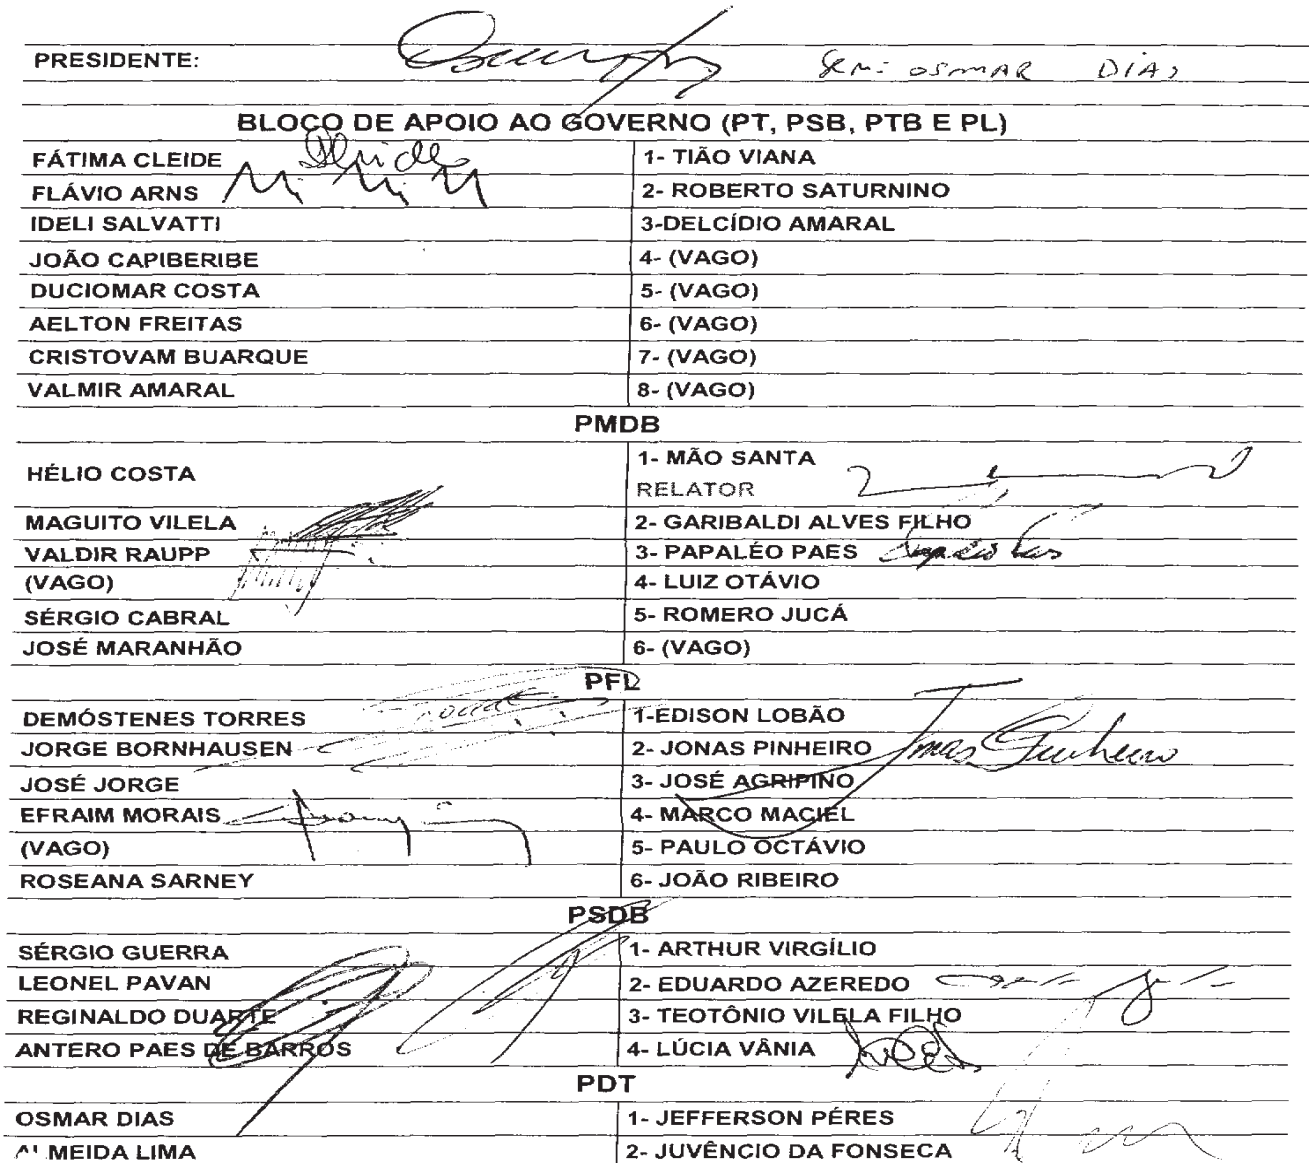 PRESIDENTE: SEN: OSMAR DIAS
BLOCO DE APOIO AO GOVERNO (PT, PSB, PTB E PL)
FÁTIMA CLEIDE 1- TIÃO VIANA
FLÁVIO ARNS 2- ROBERTO SATURNINO
IDELI SALVATTI 3-DELCÍDIO AMARAL
JOÃO CAPIBERIBE 4- (VAGO)
DUCIOMAR COSTA 5- (VAGO)
AELTON FREITAS 6- (VAGO)
CRISTOVAM BUARQUE 7- (VAGO)
VALMIR AMARAL 8- (VAGO)
PMDB
HÉLIO COSTA 1- MÃO SANTA
RELATOR
MAGUITO VILELA 2- GARIBALDI ALVES FILHO
VALDIR RAUPP 3- PAPALÉO PAES
(VAGO) 4- LUIZ OTÁVIO
SÉRGIO CABRAL 5- ROMERO JUCÁ
JOSÉ MARANHÃO 6- (VAGO)
PFL
DEMÓSTENES TORRES 1-EDISON LOBÃO
JORGE BORNHAUSEN 2- JONAS PINHEIRO Jonas Pinheiro
JOSÉ JORGE 3- JOSÉ AGRIPINO
EFRAIM MORAIS 4- MARCO MACIEL
(VAGO) 5- PAULO OCTÁVIO
ROSEANA SARNEY 6- JOÃO RIBEIRO
PSDB
SÉRGIO GUERRA 1- ARTHUR VIRGÍLIO
LEONEL PAVAN 2- EDUARDO AZEREDO
REGINALDO DUARTE 3- TEOTÔNIO VILELA FILHO
ANTERO PAES DE BARROS 4- LÚCIA VÂNIA
PDT
OSMAR DIAS 1- JEFFERSON PÉRES
ALMEIDA LIMA 2- JUVÊNCIO DA FONSECA